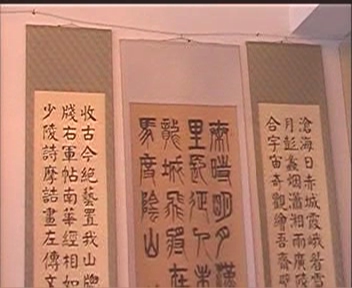 滄海日赤城霞峨眉雪
月彭蠡烟瀟湘雨廣陵
合宇宙奇觀繪吾齋壁
秦時明月漢
里長征人未
龍城飛將在
馬度陰山
少陵詩摩詰畫左傳文
牋右軍帖南華經相如
收古今絕藝置我山牕